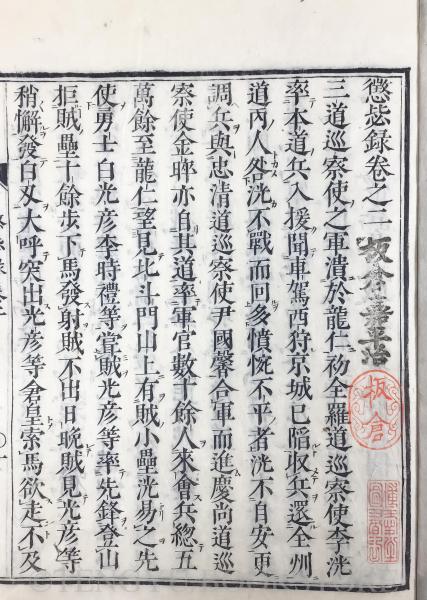 懲毖録卷之二
三道巡察使之軍潰於龍仁初全羅道巡察使李洸
率本道兵入援聞車駕西狩京城已陷収兵還全州
道内人咎洸不戰而回多憤惋不平者洸不自安更
調兵與忠清道巡察使尹國馨合軍而進慶尚道巡
察使金睟亦自其道率軍官數十餘人來會兵緫五
萬餘至龍仁望見北斗門山上有賊小壘洸易之先
使勇士白光彦李時禮等甞賊光彦等率先鋒登山
拒賊壘十餘歩下馬發射賊不出日晩賊見光彦等
稍懈發白刄大呼突出光彦等倉皇索馬欲走不及
板倉